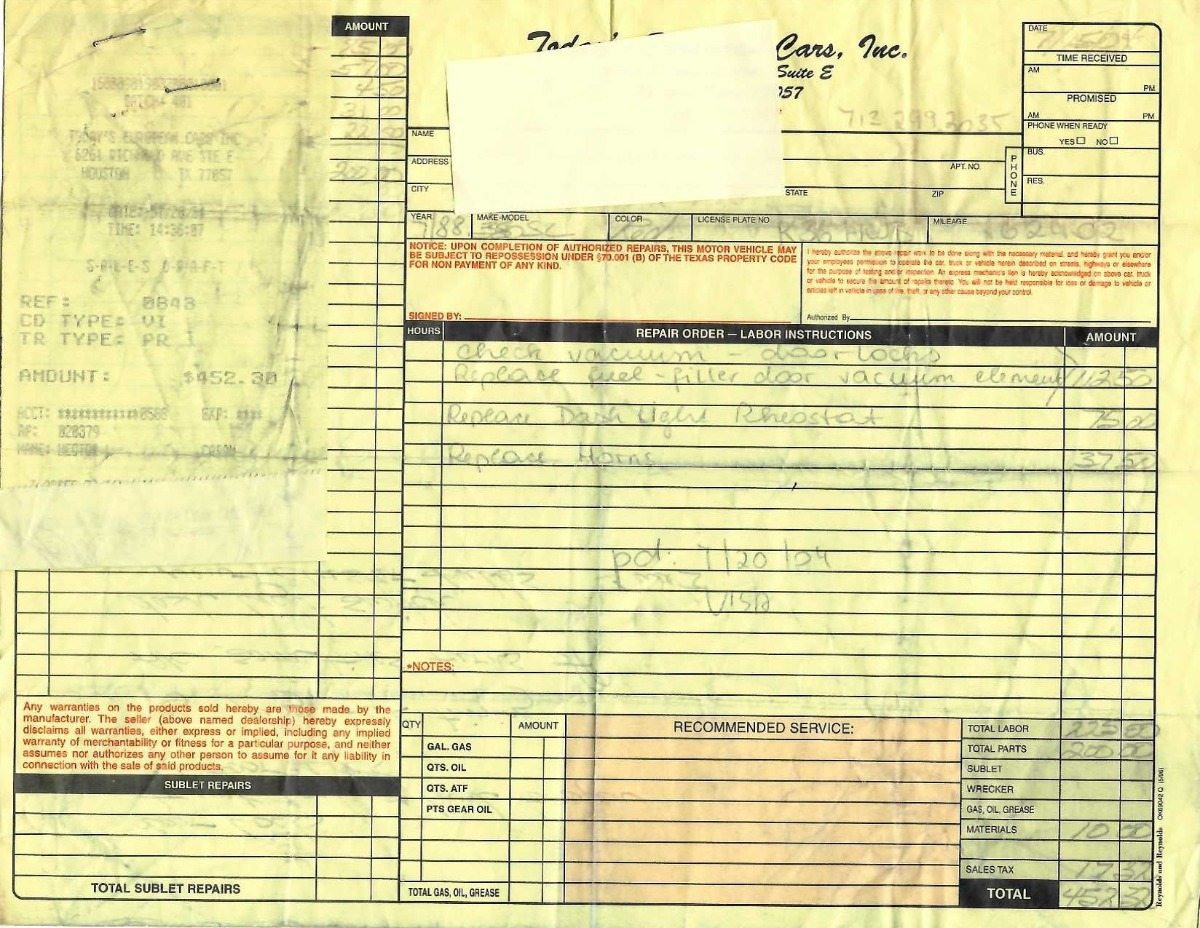 AMOUNT
57.00
4 50
31 00
22 50
200 00
BATCH# 401
TODAY'S EUROPEAN CARS INC
6261 RICHMOND AVE STE E
HOUSTON TX 77057
TIME: 14:36:07
S-A-L-E-S D-R-A-F-T
REF: 0848
CD TYPE: VI
TR TYPE: PR
AMOUNT: $452.30
ACCT: ************0508 EXP: ****
AP: 020379
Cars, Inc.
Suite E
057
713 299 2035
DATE
TIME RECEIVED
AM PM
PROMISED
AM PM
PHONE WHEN READY
YES NO
NAME
ADDRESS APT. NO.
CITY STATE ZIP
PHONE
BUS.
RES.
YEAR MAKE-MODEL COLOR LICENSE PLATE NO MILEAGE
7/88 Red 162402
NOTICE: UPON COMPLETION OF AUTHORIZED REPAIRS, THIS MOTOR VEHICLE MAY
BE SUBJECT TO REPOSSESSION UNDER §70.001 (B) OF THE TEXAS PROPERTY CODE
FOR NON PAYMENT OF ANY KIND.
SIGNED BY:
I hereby authorize the above repair work to be done along with the necessary material, and hereby grant you and/or
your employees permission to operate the car, truck or vehicle herein described on streets, highways or elsewhere
for the purpose of testing and/or inspection. An express mechanic's lien is hereby acknowledged on above car, truck
or vehicle to secure the amount of repairs thereto. You will not be held responsible for loss or damage to vehicle or
articles left in vehicle in case of fire, theft, or any other cause beyond your control.
Authorized By
HOURS REPAIR ORDER — LABOR INSTRUCTIONS AMOUNT
check vacuum - door locks
Replace fuel-filler door vacuum element 112 50
Replace Dash Light Rheostat 75 00
Replace Horns 37 50
pd. 7/20/04
VISA
*NOTES:
Any warranties on the products sold hereby are those made by the
manufacturer. The seller (above named dealership) hereby expressly
disclaims all warranties, either express or implied, including any implied
warranty of merchantability or fitness for a particular purpose, and neither
assumes nor authorizes any other person to assume for it any liability in
connection with the sale of said products.
SUBLET REPAIRS
TOTAL SUBLET REPAIRS
QTY AMOUNT
GAL. GAS
QTS. OIL
QTS. ATF
PTS GEAR OIL
TOTAL GAS, OIL, GREASE
RECOMMENDED SERVICE:
TOTAL LABOR 225 00
TOTAL PARTS 200 00
SUBLET
WRECKER
GAS, OIL, GREASE
MATERIALS 10 00
SALES TAX 17 32
TOTAL 452 32
Reynolds and Reynolds